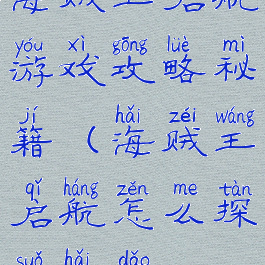 yóu xì gōng lüè mì
游戏攻略秘
jí hǎi zéi wáng
籍(海贼王
qǐ háng zěn me tàn
启航怎么探
suǒ hǎi dǎo